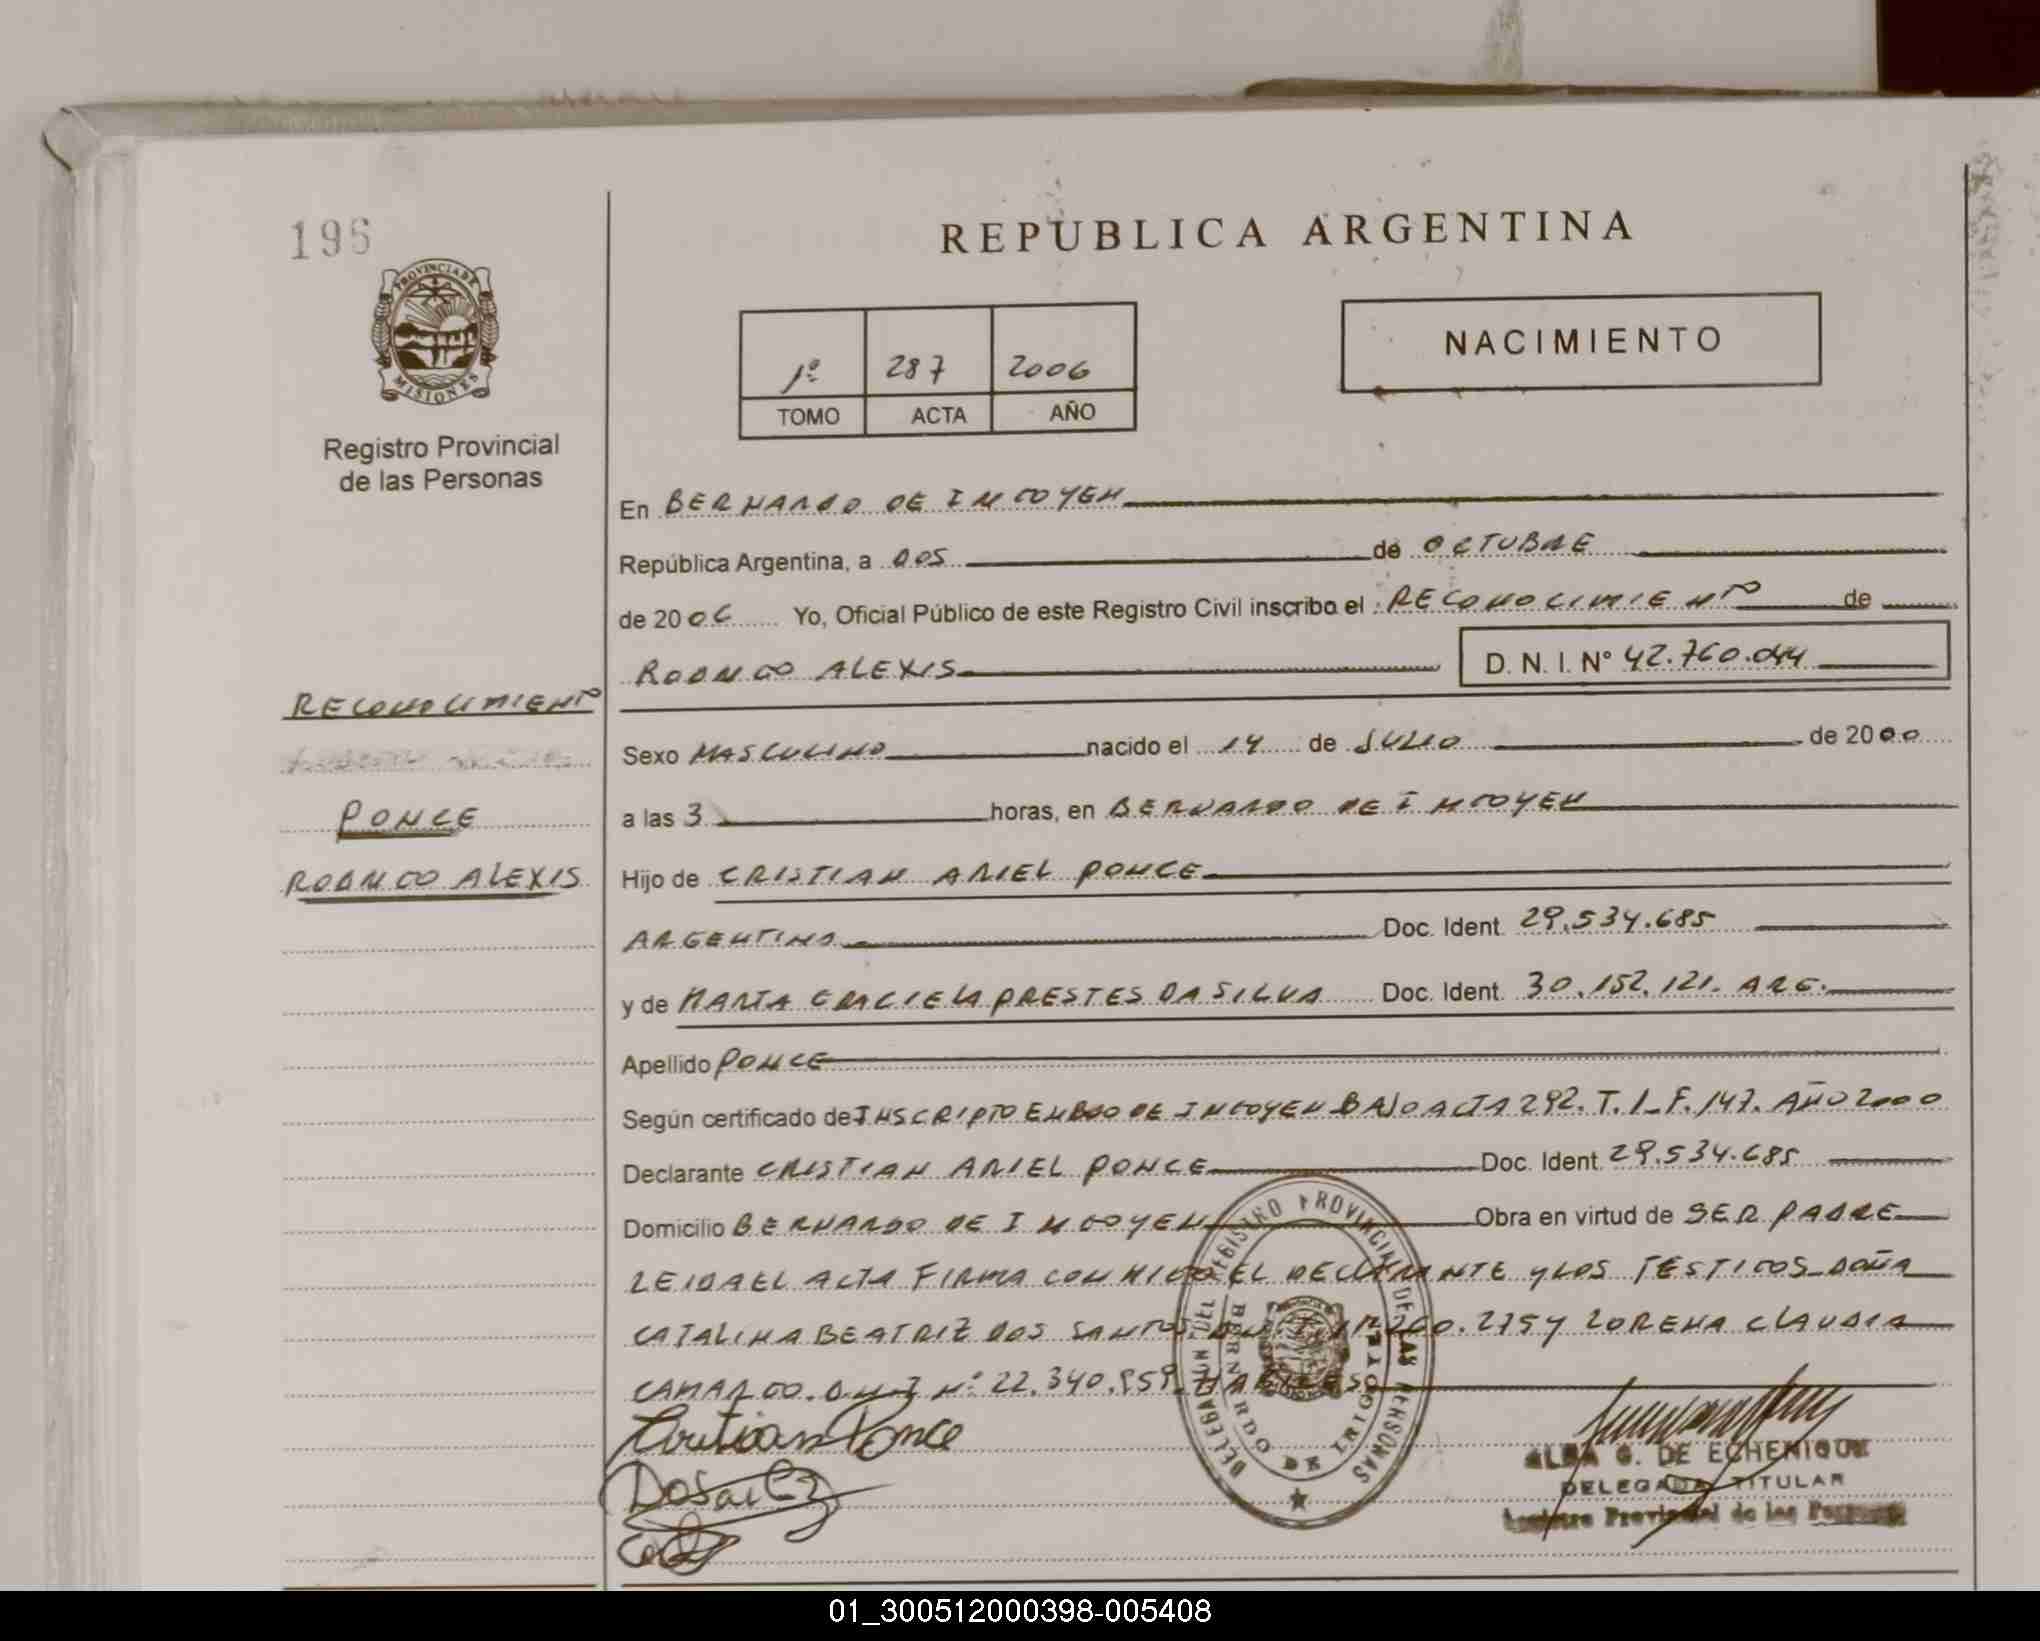 196
REPUBLICA ARGENTINA
PROVINCIA DE
MISIONES
Registro Provincial
de las Personas
1º 287 2006
TOMO ACTA AÑO
NACIMIENTO
En BERNARDO DE IRIGOYEN
República Argentina, a DOS de OCTUBRE
de 2006 Yo, Oficial Público de este Registro Civil inscribo el RECONOCIMIENTO de
RODRIGO ALEXIS D. N. I. N° 42.760.044
RECONOCIMIENTO
Sexo MASCULINO nacido el 14 de JULIO de 2000
PONCE
a las 3 horas, en BERNARDO DE IRIGOYEN
RODRIGO ALEXIS
Hijo de CRISTIAN ARIEL PONCE
ARGENTINO Doc. Ident. 29.534.685
y de MARIA GRACIELA PRESTES DA SILVA Doc. Ident. 30.152.121. ARG.
Apellido PONCE
Según certificado de INSCRIPTO EN BDO DE IRIGOYEN BAJO ACTA 292. T. 1_F. 147. AÑO 2000
Declarante CRISTIAN ARIEL PONCE Doc. Ident. 29.534.685
Domicilio BERNARDO DE IRIGOYEN Obra en virtud de SER PADRE
LEIDA EL ACTA FIRMA CONMIGO EL DECLARANTE Y LOS TESTIGOS_DOÑA
CATALINA BEATRIZ DOS SANTOS 275 Y LORENA CLAUDIA
CAMARGO. D.N.I Nº 22.340.959. HABILES
Cristian Ponce
DELEGACION DEL REGISTRO PROVINCIAL DE LAS PERSONAS
BERNARDO DE IRIGOYEN
ALBA G. DE ECHENIQUE
DELEGADA TITULAR
Registro Provincial de las Personas
01_300512000398-005408